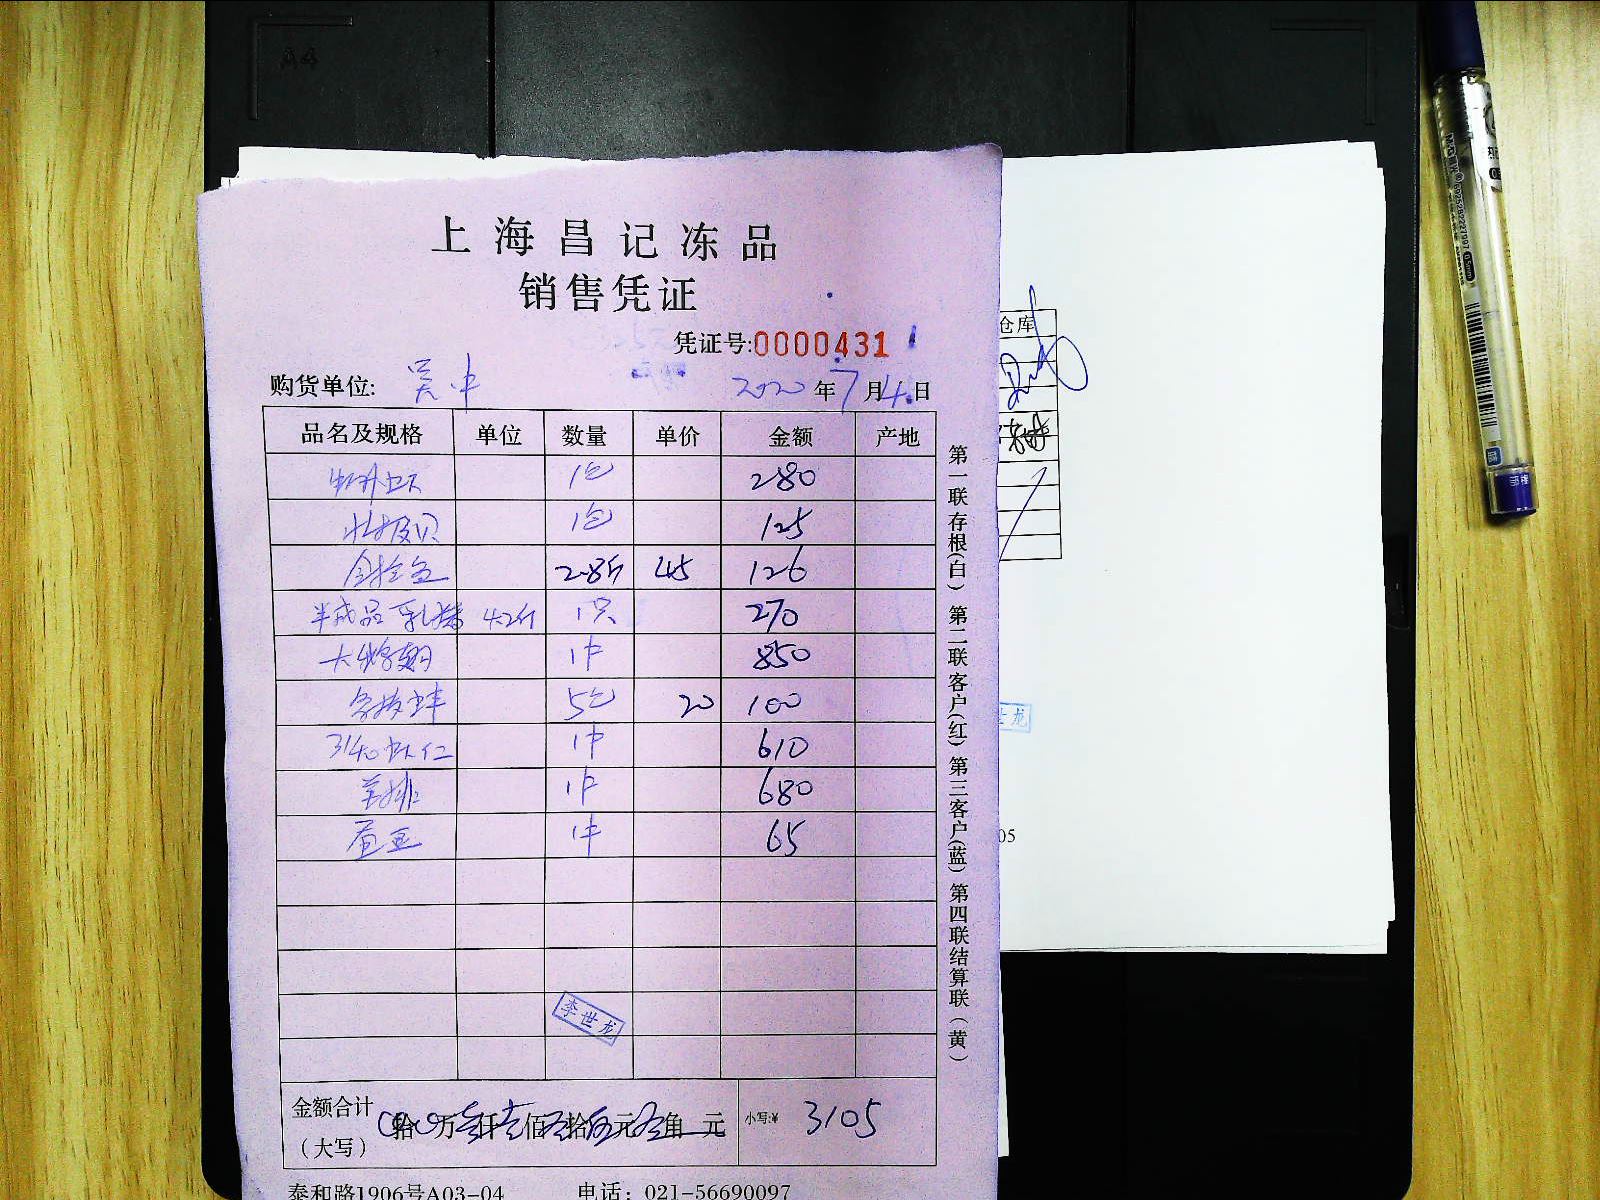 A4
上海昌记冻品
销售凭证
凭证号:0000431
购货单位: 吴中 2020年7月4日
品名及规格 单位 数量 单价 金额 产地
1包 280
1包 125
金抢鱼 2.8斤 45 126
半成品乳猪 4.2斤 1只 270
1件 850
5包 20 100
3140虾仁 1件 610
羊排 1件 680
1件 65
李世龙
金额合计
(大写)
拾万叁仟壹佰零拾伍元零角 元 小写:¥ 3105
泰和路1906号A03-04 电话: 021-56690097
第一联存根(白) 第二联客户(红) 第三客户(蓝) 第四联结算联(黄)
仓库
世龙
05